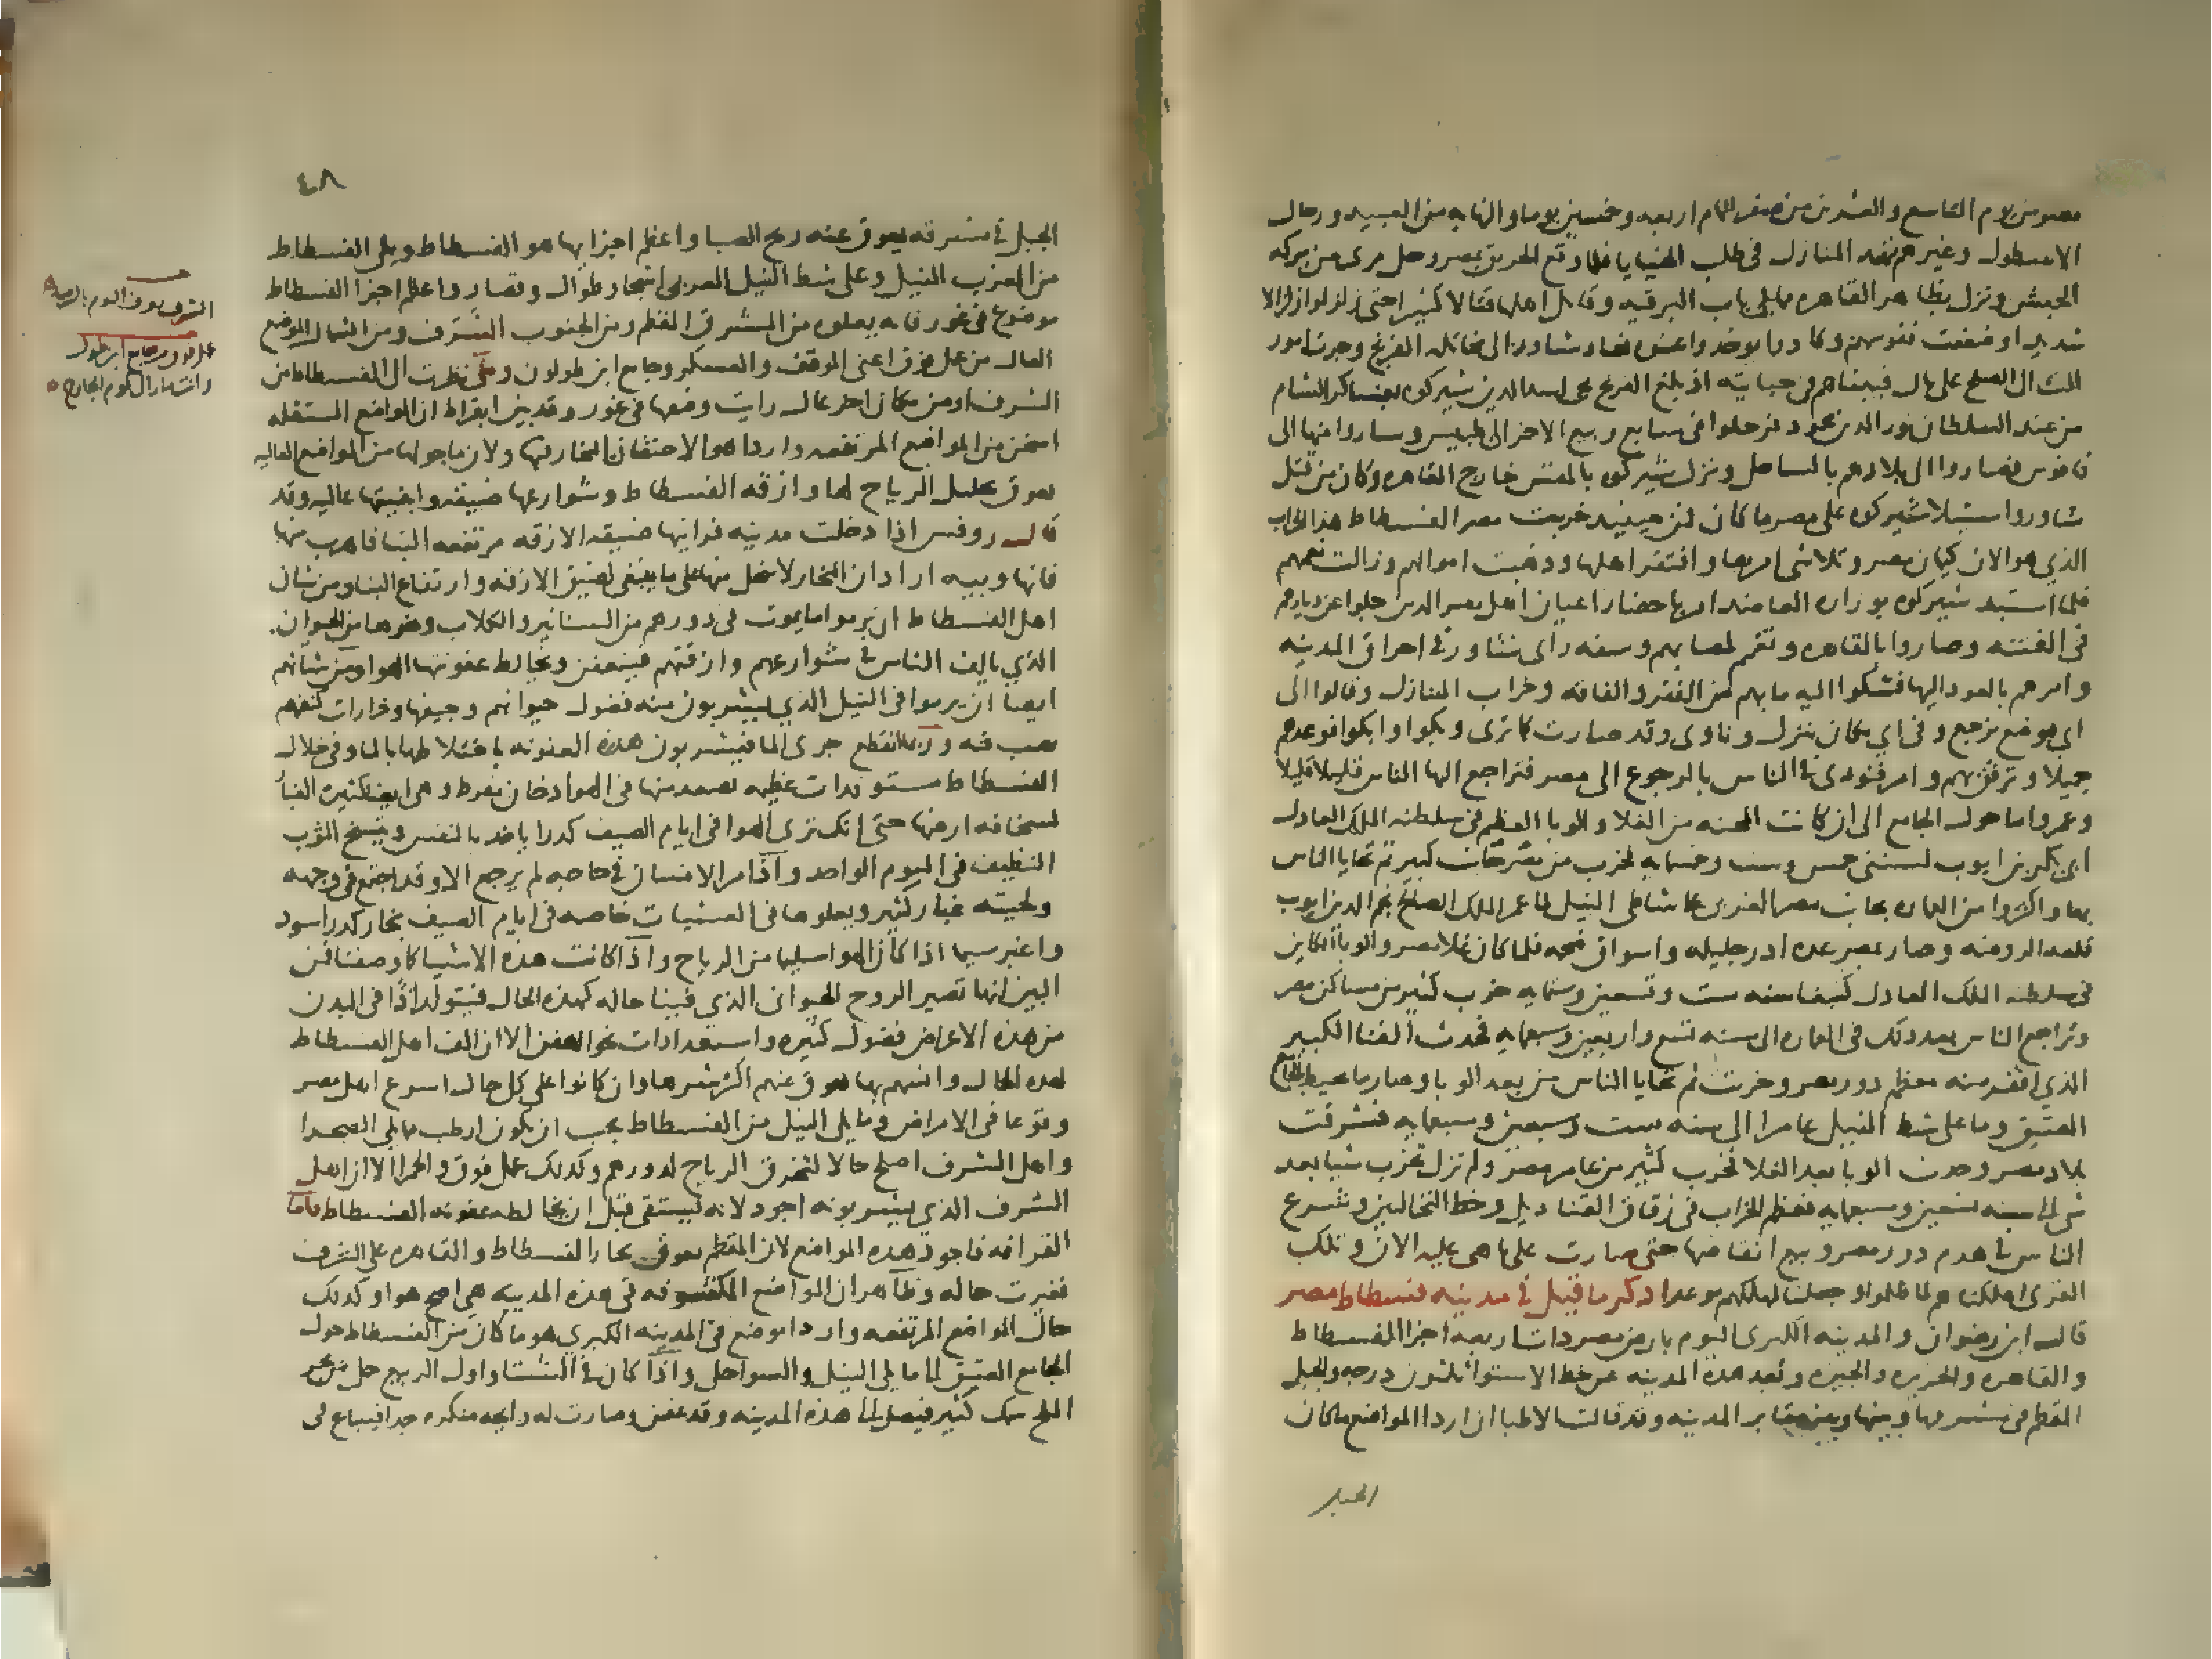 مصر من يوم التاسع والعشرين من صفر لتمام اربعه وخمسين يوما والنهابه من العبيد ورجال
الاسطول وغيرهم بهذه المنازل في طلب الخبايا فلما وقع الحريق بمصر رحل مرى من بركه
الحبش ونزل بظاهر القاهره مما يلي باب البرقيه وقاتل اهلها قتالا كثيرا حتى زلزلوا زلزالا
شديدا وضعفت نفوسهم وكادوا يوخذوا عنوه فعاد شاور الى مخاتله الفرنج وجرت امور
الت الى الصلح على مال فبينما هم في جبايته اذ بلغ الفرنج مجى اسد الدين شيركوه بعساكر الشام
من عند السلطان نور الدين محمود فرحلوا في سابع ربيع الاخر الى بلبيس وساروا منها الى
فاقوس فصاروا الى بلادهم بالساحل ونزل شيركوه بالمقس خارج القاهره وكان من قتل
شاور واستيلا شيركوه على مصر ما كان فمن حينيذ خربت مصر الفسطاط هذا الخراب
الذي هو الان كيمان مصر وتلاشى امرها وافتقر اهلها وذهبت اموالهم وزالت نعمهم
فلما استبد شيركوه بوزاره العاضد امر باحضار اعيان اهل مصر الذين جلوا عن ديارهم
في الفتنه وصاروا بالقاهره وتغمم لمصابهم وسفه راى شاور في احراق المدينه
وامرهم بالعود اليها فشكوا اليه ما بهم من الفقر والفاقه وخراب المنازل وقالوا الى
اي موضع نرجع وفي اي مكان ننزل وناوى وقد صارت كما ترى وبكوا وابكوا فوعدهم
جميلا وترفق بهم وامر فنودى في الناس بالرجوع الى مصر فتراجع اليها الناس قليلا قليلا
وعمروا ما حول الجامع الى ان كانت المحنه من الغلا والوبا العظيم في سلطنه الملك العادل
ابي بكر بن ايوب لسنتى خمس وست وخمسمايه فخرب من مصر جانب كبير ثم تحايا الناس
بها واكثروا من العماره بجانب مصر الغربى على شاطى النيل لما عمر الملك الصالح نجم الدين ايوب
قلعه الروضه وصار بمصر عده ادر جليله واسواق ضخمه فلما كان غلا مصر والوبا الكاين
في سلطنه الملك العادل كتبغا سنه ست وتسعين وستمايه خرب كثير من مساكن مصر
وتراجع الناس بعد ذلك في العماره الى سنه تسع واربعين وسبعمايه فحدث الفنا الكبير
الذي اقفر منه معظم دور مصر وخربت ثم تحايا الناس من بعد الوبا وصار ما يحيط بالجامع
العتيق وما على شط النيل عامرا الى سنه ست وسبعين وسبعمايه فشرقت
بلاد مصر وحدث الوبا بعد الغلا فخرب كثير من عامر مصر ولم تزل تخرب شيا بعد
شى الى سنه تسعين وسبعمايه فعظم الخراب في زقاق القناديل وخط النخالين وشرع
الناس في هدم دور مصر وبيع انقاضها حتى صارت على ما هى عليه الان وتلك
القرى اهلكناهم لما ظلموا وجعلنا لمهلكهم موعدا ذكر ما قيل في مدينه فسطاط مصر
قال ابن رضوان والمدينه الكبرى اليوم بارض مصر ذات اربعه اجزا الفسطاط
والقاهره والجزيره والجيزه وبعد هذه المدينه عن خط الاستوا ثلثون درجه والجبل
المقطم في شرقيها وبينها وبينه مقابر المدينه وقد قالت الاطبا ان اردا المواضع ما كان
الجبل
٤٨
الجبل في شرقيه يعوق عنه ريح الصبا واعظم اجزايها هو الفسطاط ويلى الفسطاط
من الغرب النيل وعلى شط النيل الغربى اشجار طوال وقصار واعظم اجزا الفسطاط
موضوع في غور فانه يعلوه من المشرق المقطم ومن الجنوب الشرف ومن الشمال الموضع
العالى من عمل فوق اعنى الموقف والعسكر وجامع ابن طولون ومتى نظرت الى الفسطاط من
الشرف او من مكان اخر عال رايت وضعها في غور وقد بين ابقراط ان المواضع المستفله
اسخن من المواضع المرتفعه واردا هوا لاحتقان البخار فيها ولان ما حولها من المواضع العاليه
يعوق تحليل الرياح لها وازقه الفسطاط وشوارعها ضيقه وابنيتها عاليه وقد
قال روفس اذا دخلت مدينه فرايتها ضيقه الازقه مرتفعه البنا فاهرب منها
فانها وبيه اراد ان البخار لا ينحل منها على ما ينبغى لضيق الازقه وارتفاع البنا ومن شان
اهل الفسطاط ان يرموا ما يموت في دورهم من السنانير والكلاب ونحوها من الحيوان
الذي يالف الناس في شوارعهم وازقتهم فيتعفن ويخالط عفونتها الهوا ومن شانهم
ايضا ان يرموا في النيل الذي يشربون منه فضول حيوانهم وجيفها وخرارات كنفهم
تصب فيه وربما انقطع جرى الما فيشربون هذه العفونه باختلاطها بالما وفي خلال
الفسطاط مستوقدات عظيمه يصعد منها في الهوا دخان مفرط وهى ايضا كثيره الغبار
لسخافه ارضها حتى انك ترى الهوا في ايام الصيف كدرا ياخذ بالنفس ويتسخ الثوب
النظيف في اليوم الواحد واذا مر الانسان في حاجه لم يرجع الا وقد اجتمع في وجهه
ولحيته غبار كثير ويعلوها في العشيات خاصه في ايام الصيف بخار كدر اسود
واغبر سيما اذا كان الهوا سليما من الرياح واذا كانت هذه الاشيا كما وصفنا فمن
البين انها تصير الروح الحيوانى الذي فينا حاله كهذه الحال فيتولد اذا في البدن
من هذه الاعراض فضول كثيره واستعدادات نحو العفن الا ان الف اهل الفسطاط
لهذه الحال وانسهم بها يعوق عنهم اكثر شرها وان كانوا على كل حال اسرع اهل مصر
وقوعا في الامراض وما يلى النيل من الفسطاط يجب ان يكون ارطب مما يلى الصحرا
واهل الشرف اصلح حالا لتخرق الرياح لدورهم وكذلك عمل فوق والحمرا الا ان اهل
الشرف الذي يشربونه اجود لانه يستقى قبل ان يخالطه عفونه الفسطاط فاما
القرافه فاجود هذه المواضع لان المقطم يعوق بخار الفسطاط والقاهره على الشرف
فغيرت حاله وظاهر ان المواضع المكشوفه في هذه المدينه هى اصح هوا وكذلك
حال المواضع المرتفعه واردا موضع في المدينه الكبرى هو ما كان من الفسطاط حول
الجامع العتيق الى ما يلى النيل والسواحل واذا كان في الشتا واول الربيع حمل من بحر
الملح سمك كثير فيصل الى هذه المدينه وقد عفن وصارت له رايحه منكره جدا فيباع في
الشرف يعرف اليوم بالرصد
عمل فوق هو جامع ابن طولون
وانتها الى الكوم الجارح